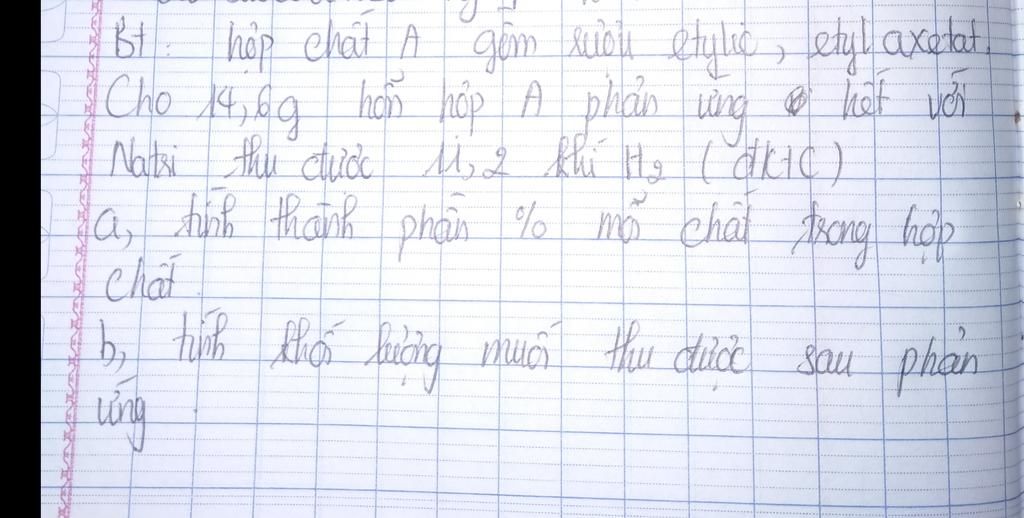 Bt : hợp chất A gồm rượu etylic, etyl axetat.
Cho 14,6g hỗn hợp A phản ứng hết với
Natri thu được 11,2 khí H2 (đktc)
a, tính thành phần % mỗi chất trong hợp
chất.
b, tính khối lượng muối thu được sau phản
ứng.